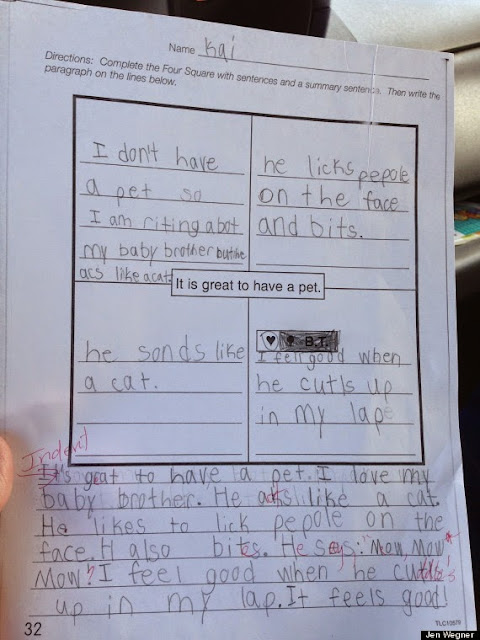 Name Kai
Directions: Complete the Four Square with sentences and a summary sentence. Then write the
paragraph on the lines below.
I don't have
a pet so
I am riting abot
my baby brother but he
acs like a cat
he licks pepole
on the face
and bits.
It is great to have a pet.
he sonds like
a cat.
B.T.
I feel good when
he cutls up
in my lap
Indent
It's grat to have a pet. I love my
baby brother. He acts like a cat.
He likes to lick pepole on the
face. H also bites. He says: "Mow, Mow
Mow" I feel good when he
up in my lap. It feels good!
32
TLC10570
Jen Wegner